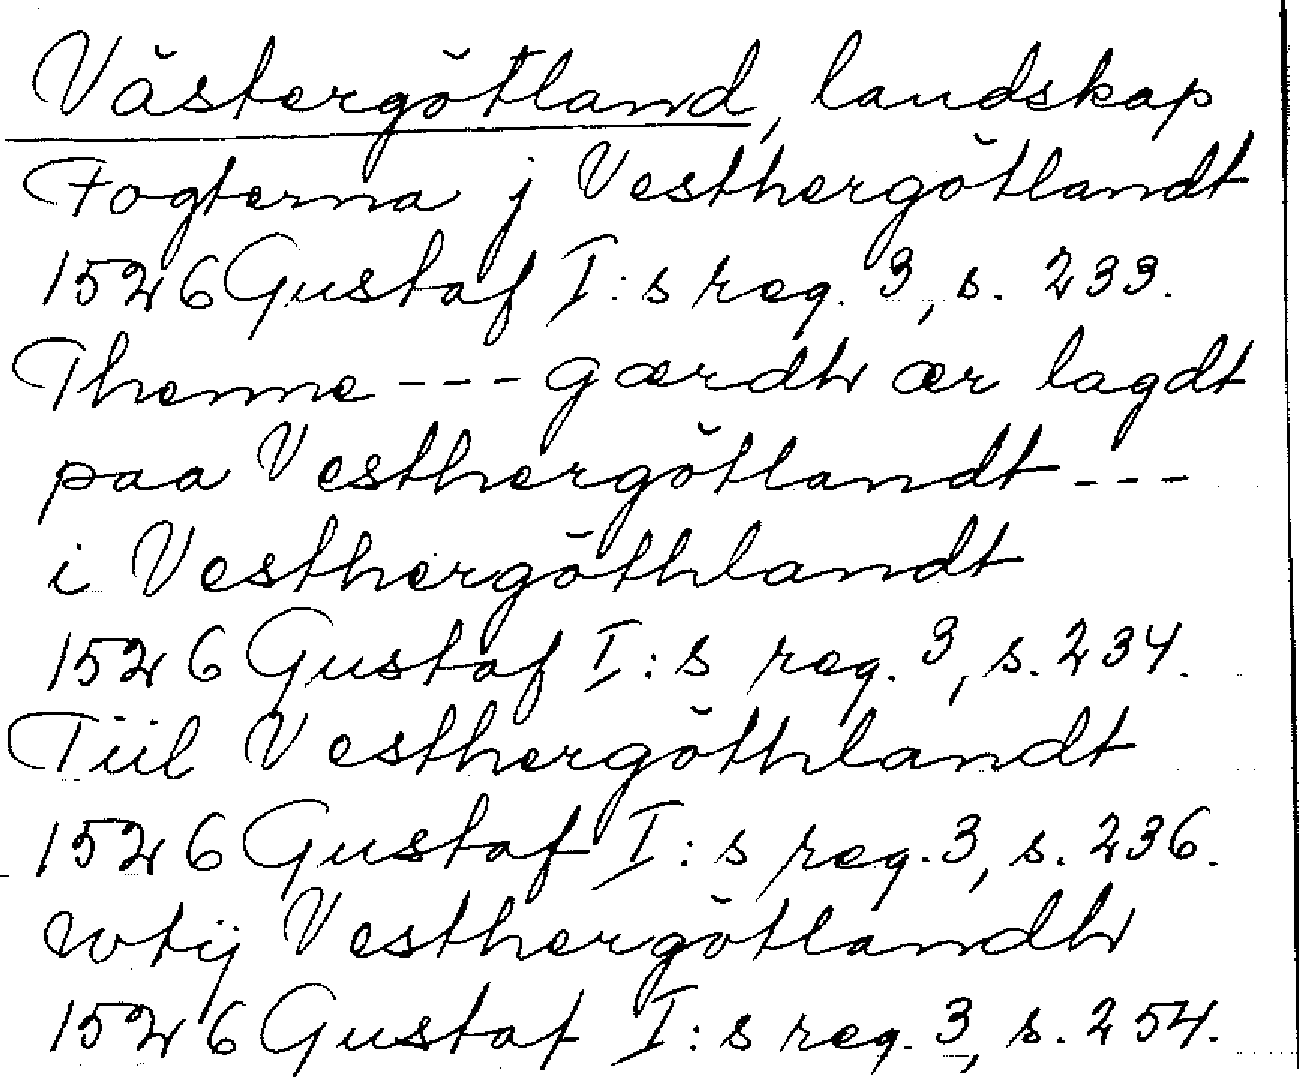 Västergötland, landskap
Fogterna j Vesthergötlandt
1526 Gustaf I:s reg. 3, s. 233.
Thenne --- gærdh ær lagdt
paa Vesthergötlandt ---
i Vesthergöthlandt
1526 Gustaf I:s reg. 3, s. 234.
Tiil Vesthergöthlandt
1526 Gustaf I:s reg. 3, s. 236.
wtij Vesthergötlandh
1526 Gustaf I:s reg. 3, s. 254.